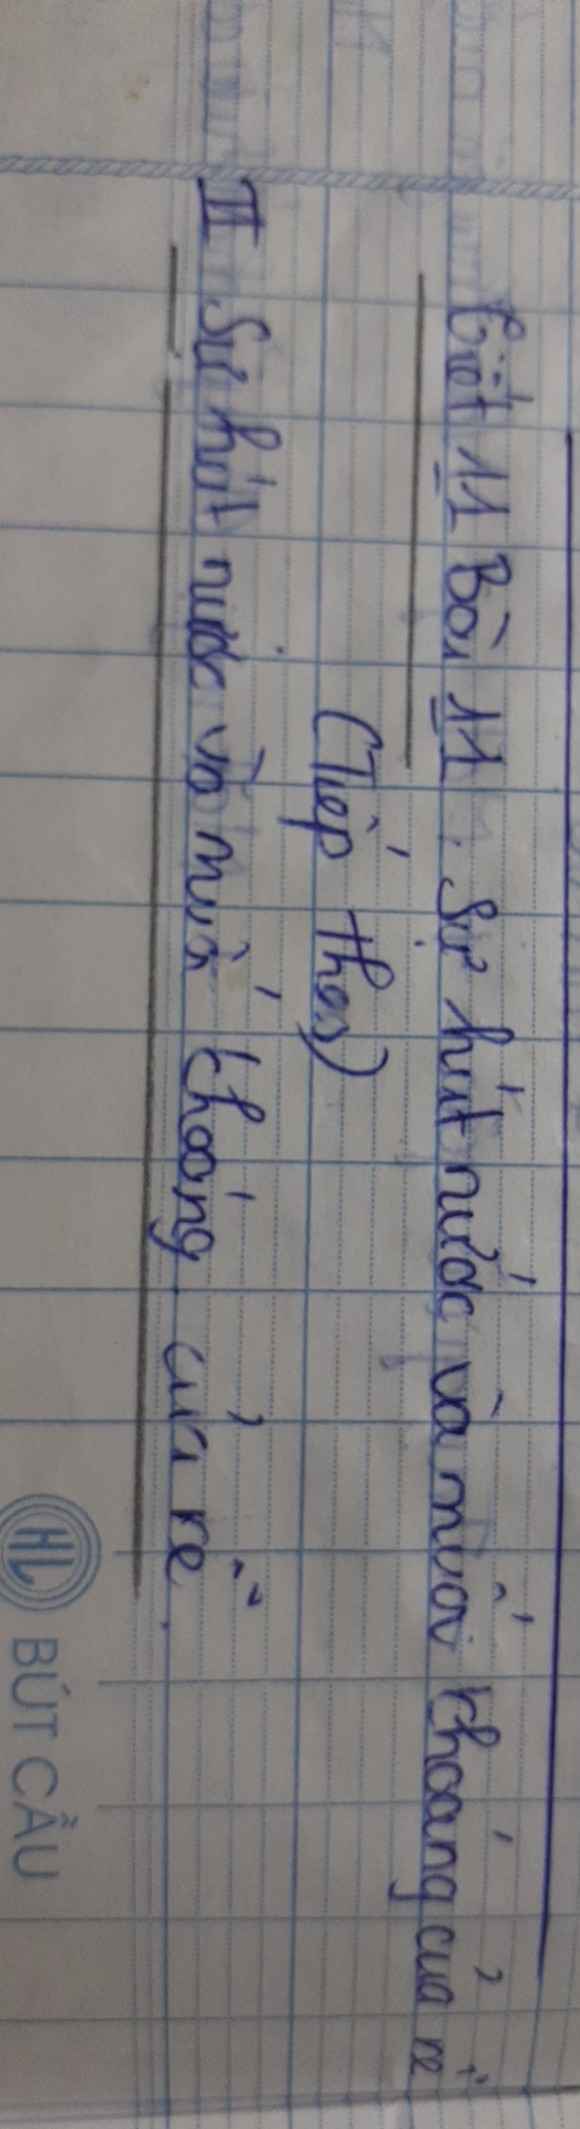 Tiết 11 Bài 11. Sự hút nước và muối khoáng của rễ
(Tiếp theo)
II Sự hút nước và muối khoáng của rễ.
HL BÚT CẦU